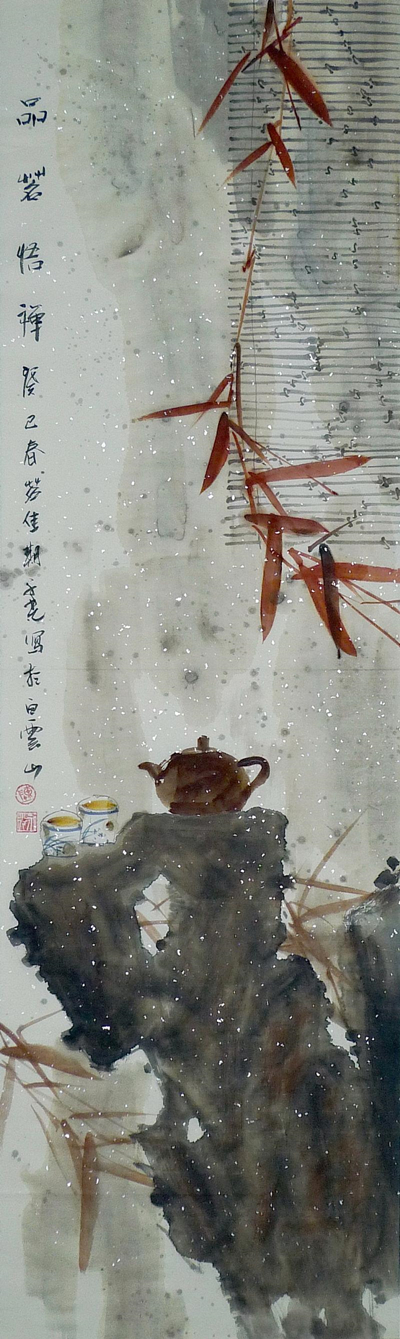 品茗悟禅癸巳春茗佳期永尧写于白云山